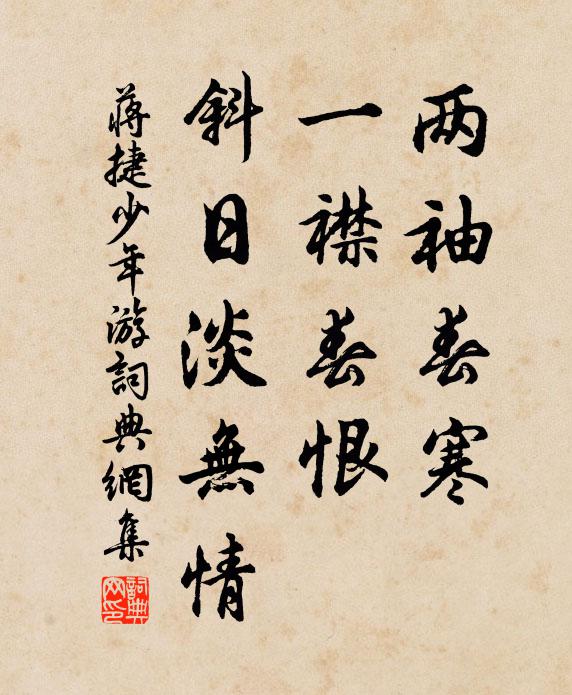 两袖春寒
一襟春恨
斜日淡無情
蔣捷少年游詞典網集
詞典
网印